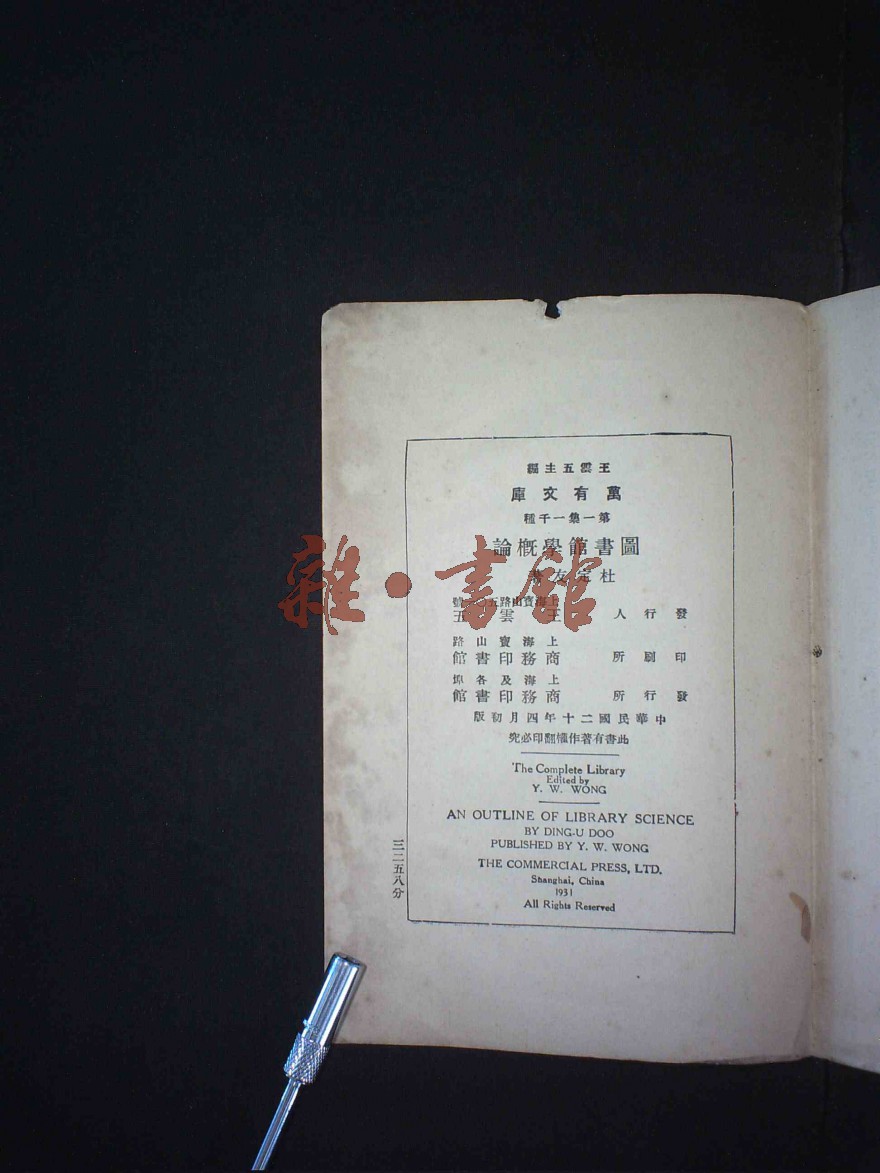 王雲五主編
萬有文庫
第一集一千種
圖書館學概論
杜定友著
上海寶山路五號
發行人 王雲五
上海寶山路
印刷所 商務印書館
上海及各埠
發行所 商務印書館
中華民國二十年四月初版
此書有著作權翻印必究
The Complete Library
Edited by
Y. W. WONG
AN OUTLINE OF LIBRARY SCIENCE
BY DING-U DOO
PUBLISHED BY Y. W. WONG
THE COMMERCIAL PRESS, LTD.
Shanghai, China
1931
All Rights Reserved
三二五八分
雜·書館